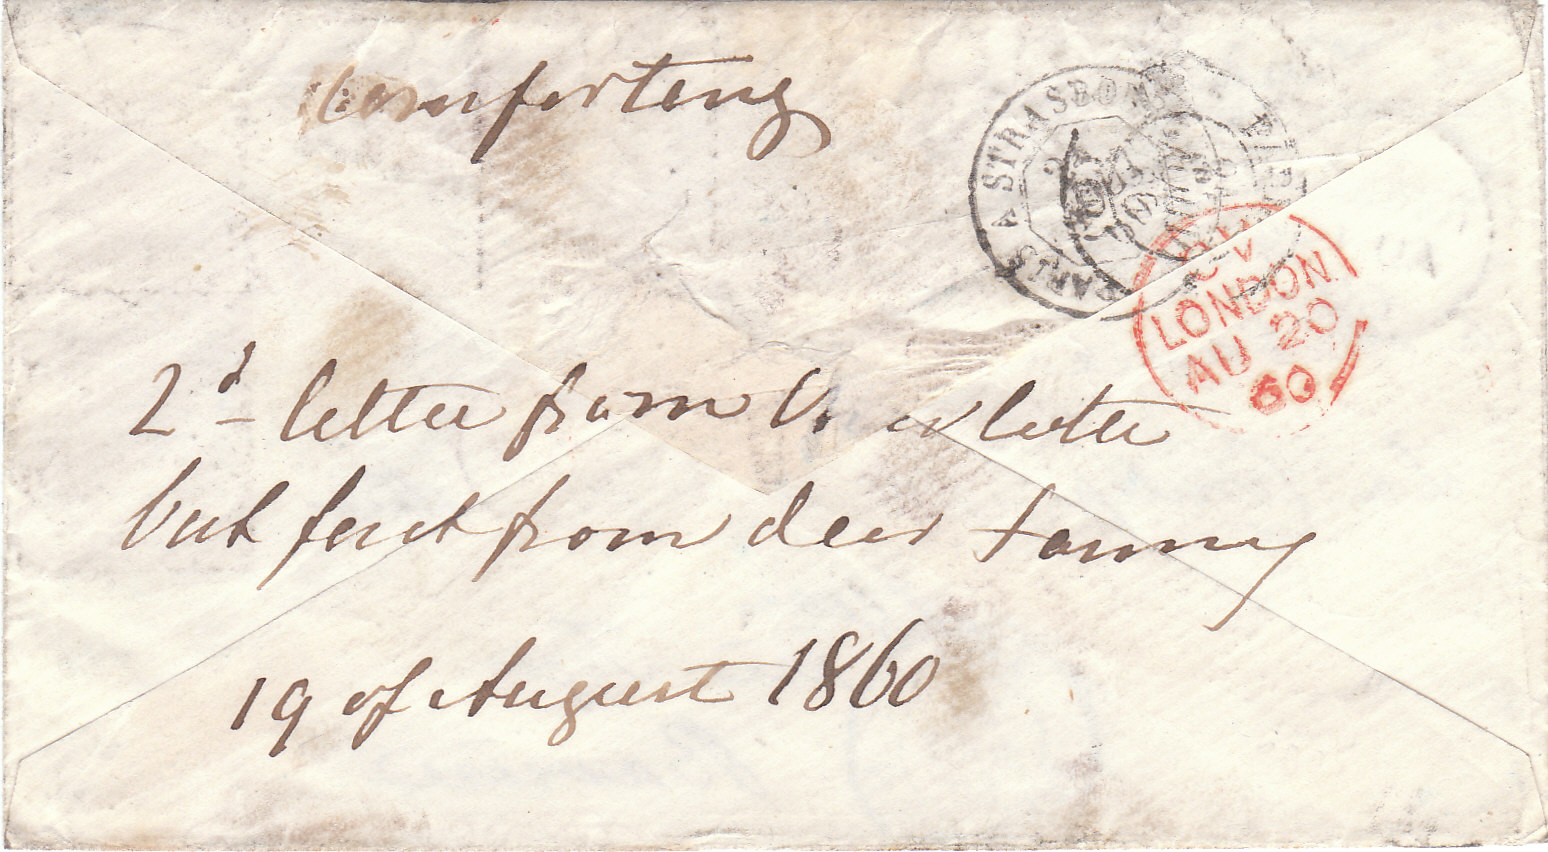 Comforting
PARIS A STRASBOURG
LONDON
AU 20
60
2d letter from
but first from dear Fanny
19 of August 1860